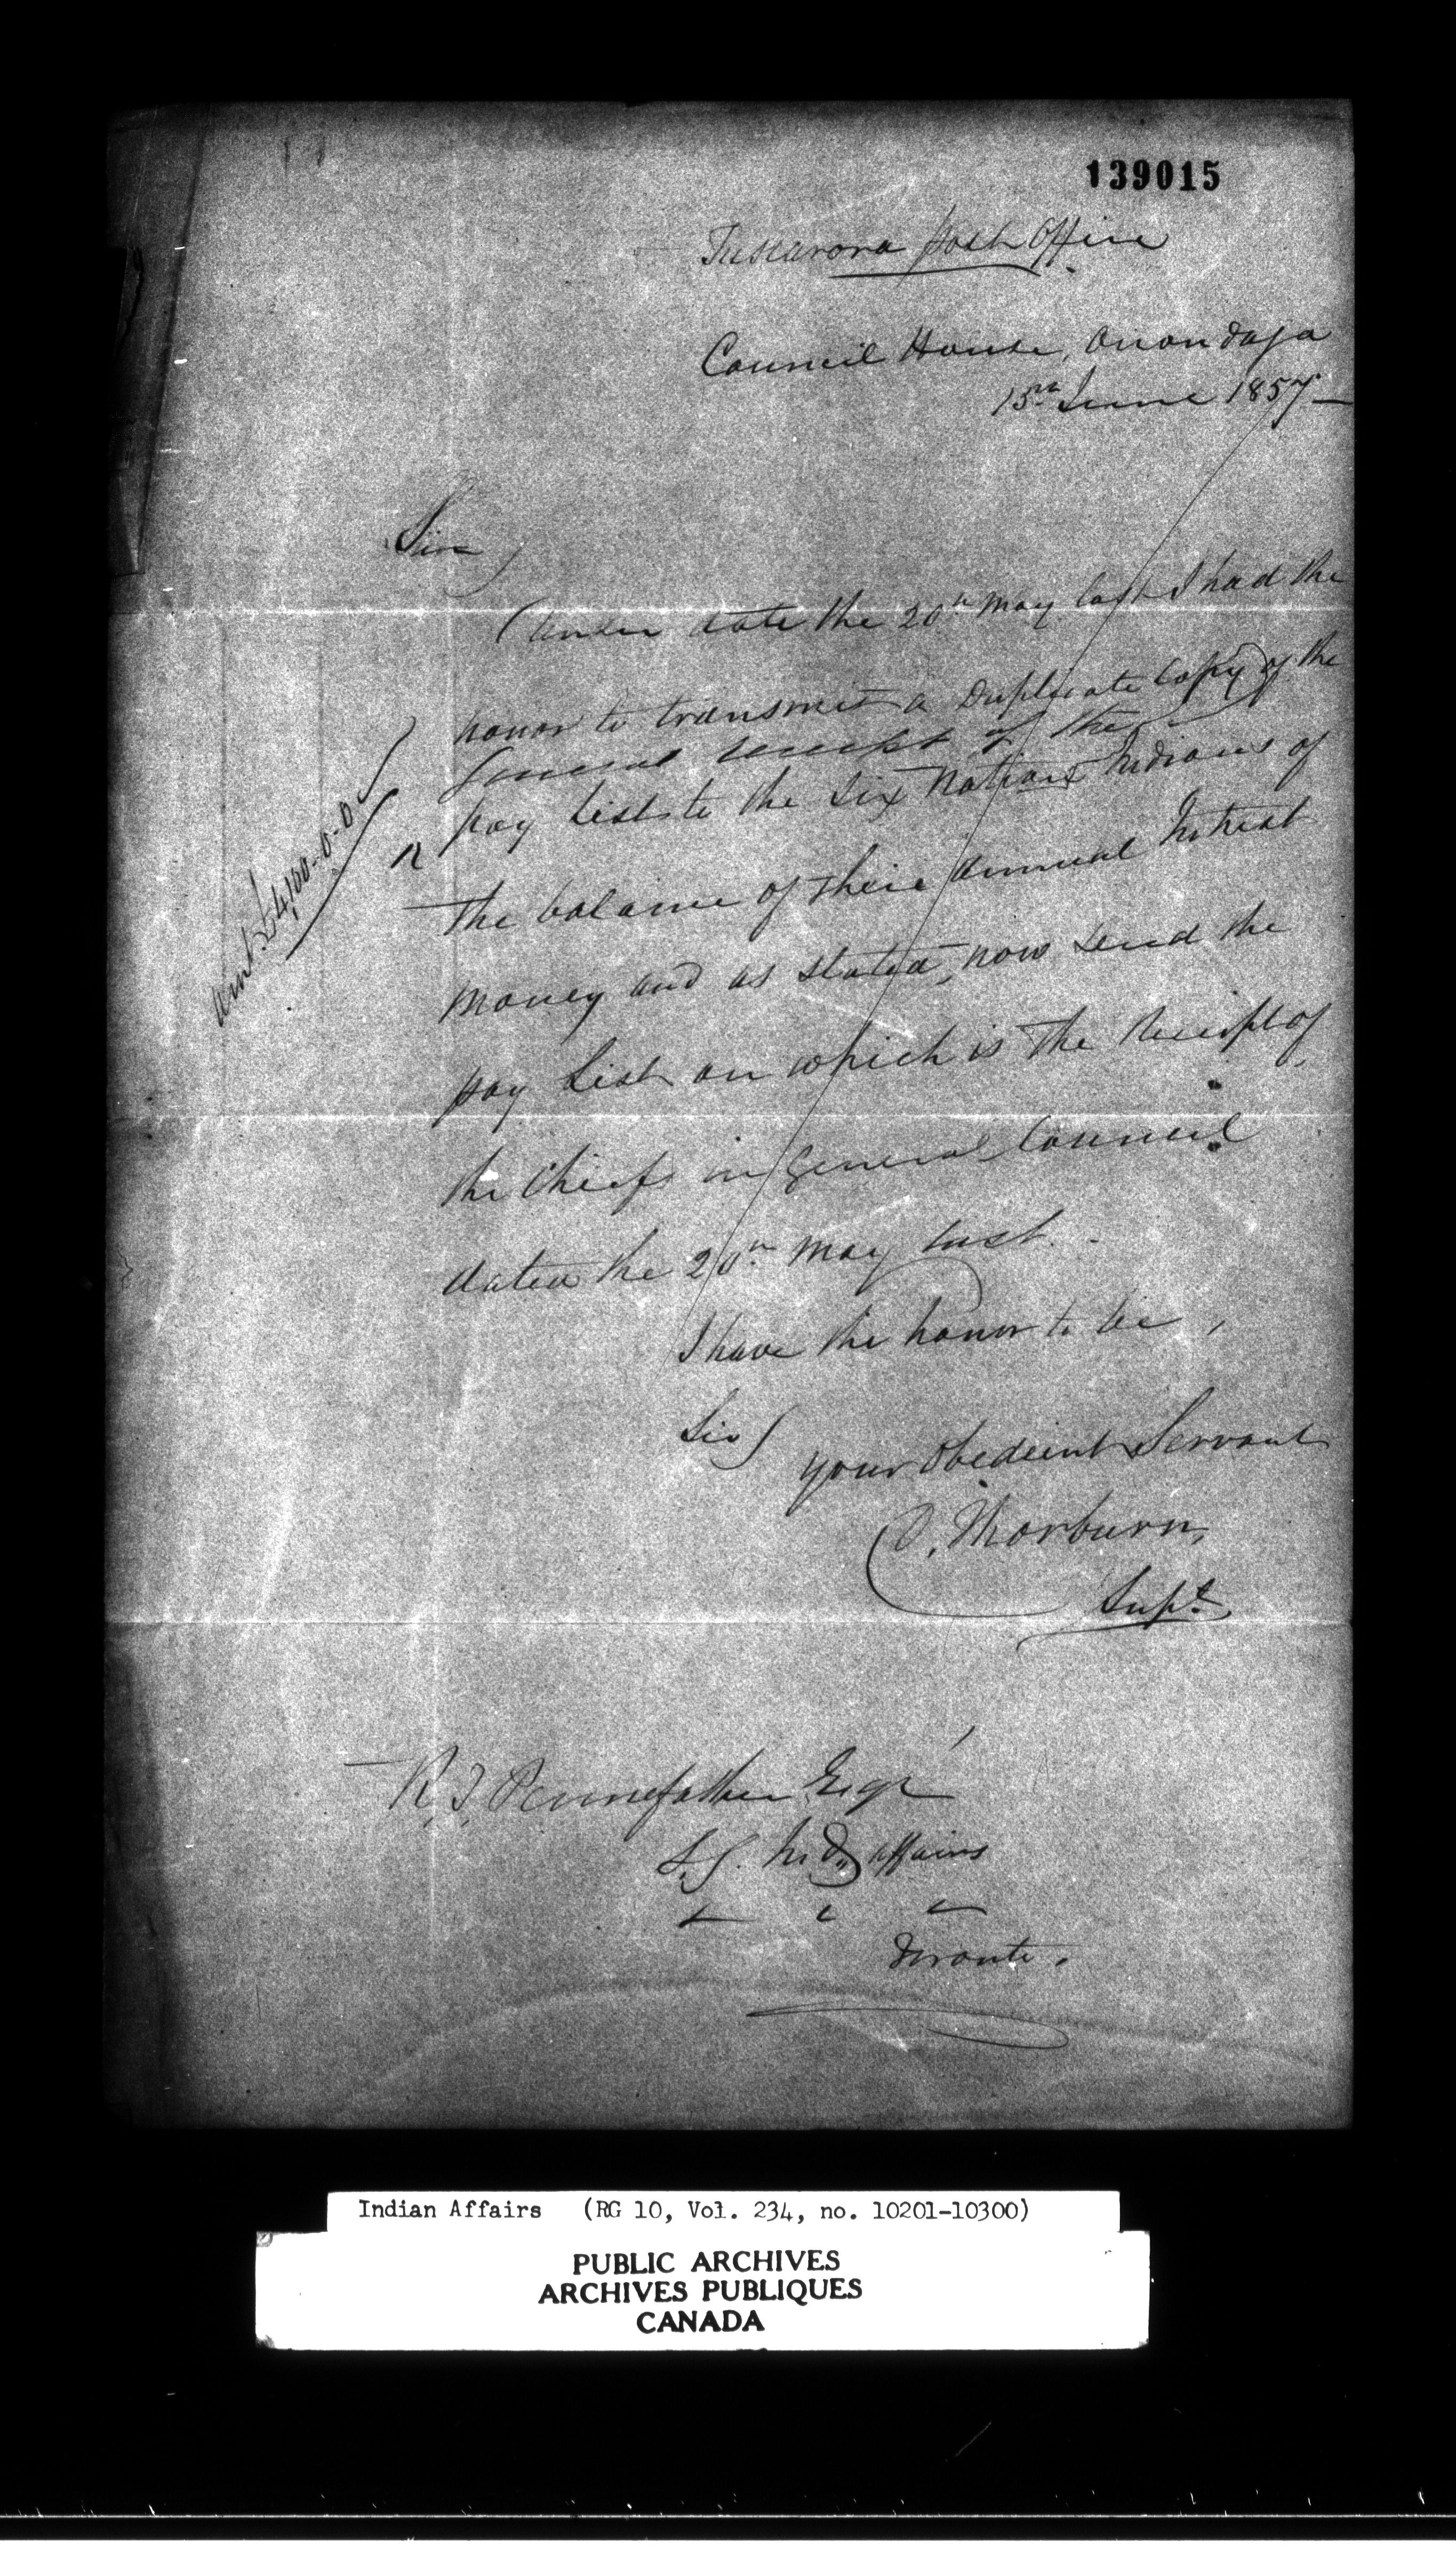 139015
Tuscarora Post Office
Council House, Onondaga
15th June 1857
Sir,
Under date the 20th May last I had the
honor to transmit a Duplicate Copy of the
General receipt of the
pay list to the Six Nations Indians of
The balance of their annual Intrest
Amt £4,100-0-0
money and as stated, now send the
pay List on which is The Receipt of
the Chiefs in General Council
dated the 20th May last.
I have the honor to be,
Sir
your obedient Servant
D. Thorburn,
Supt.
R. T. Pennefather Esqr
S. G. Ind. affairs
Toronto.
Indian Affairs (RG 10, Vol. 234, no. 10201-10300)
PUBLIC ARCHIVES
ARCHIVES PUBLIQUES
CANADA